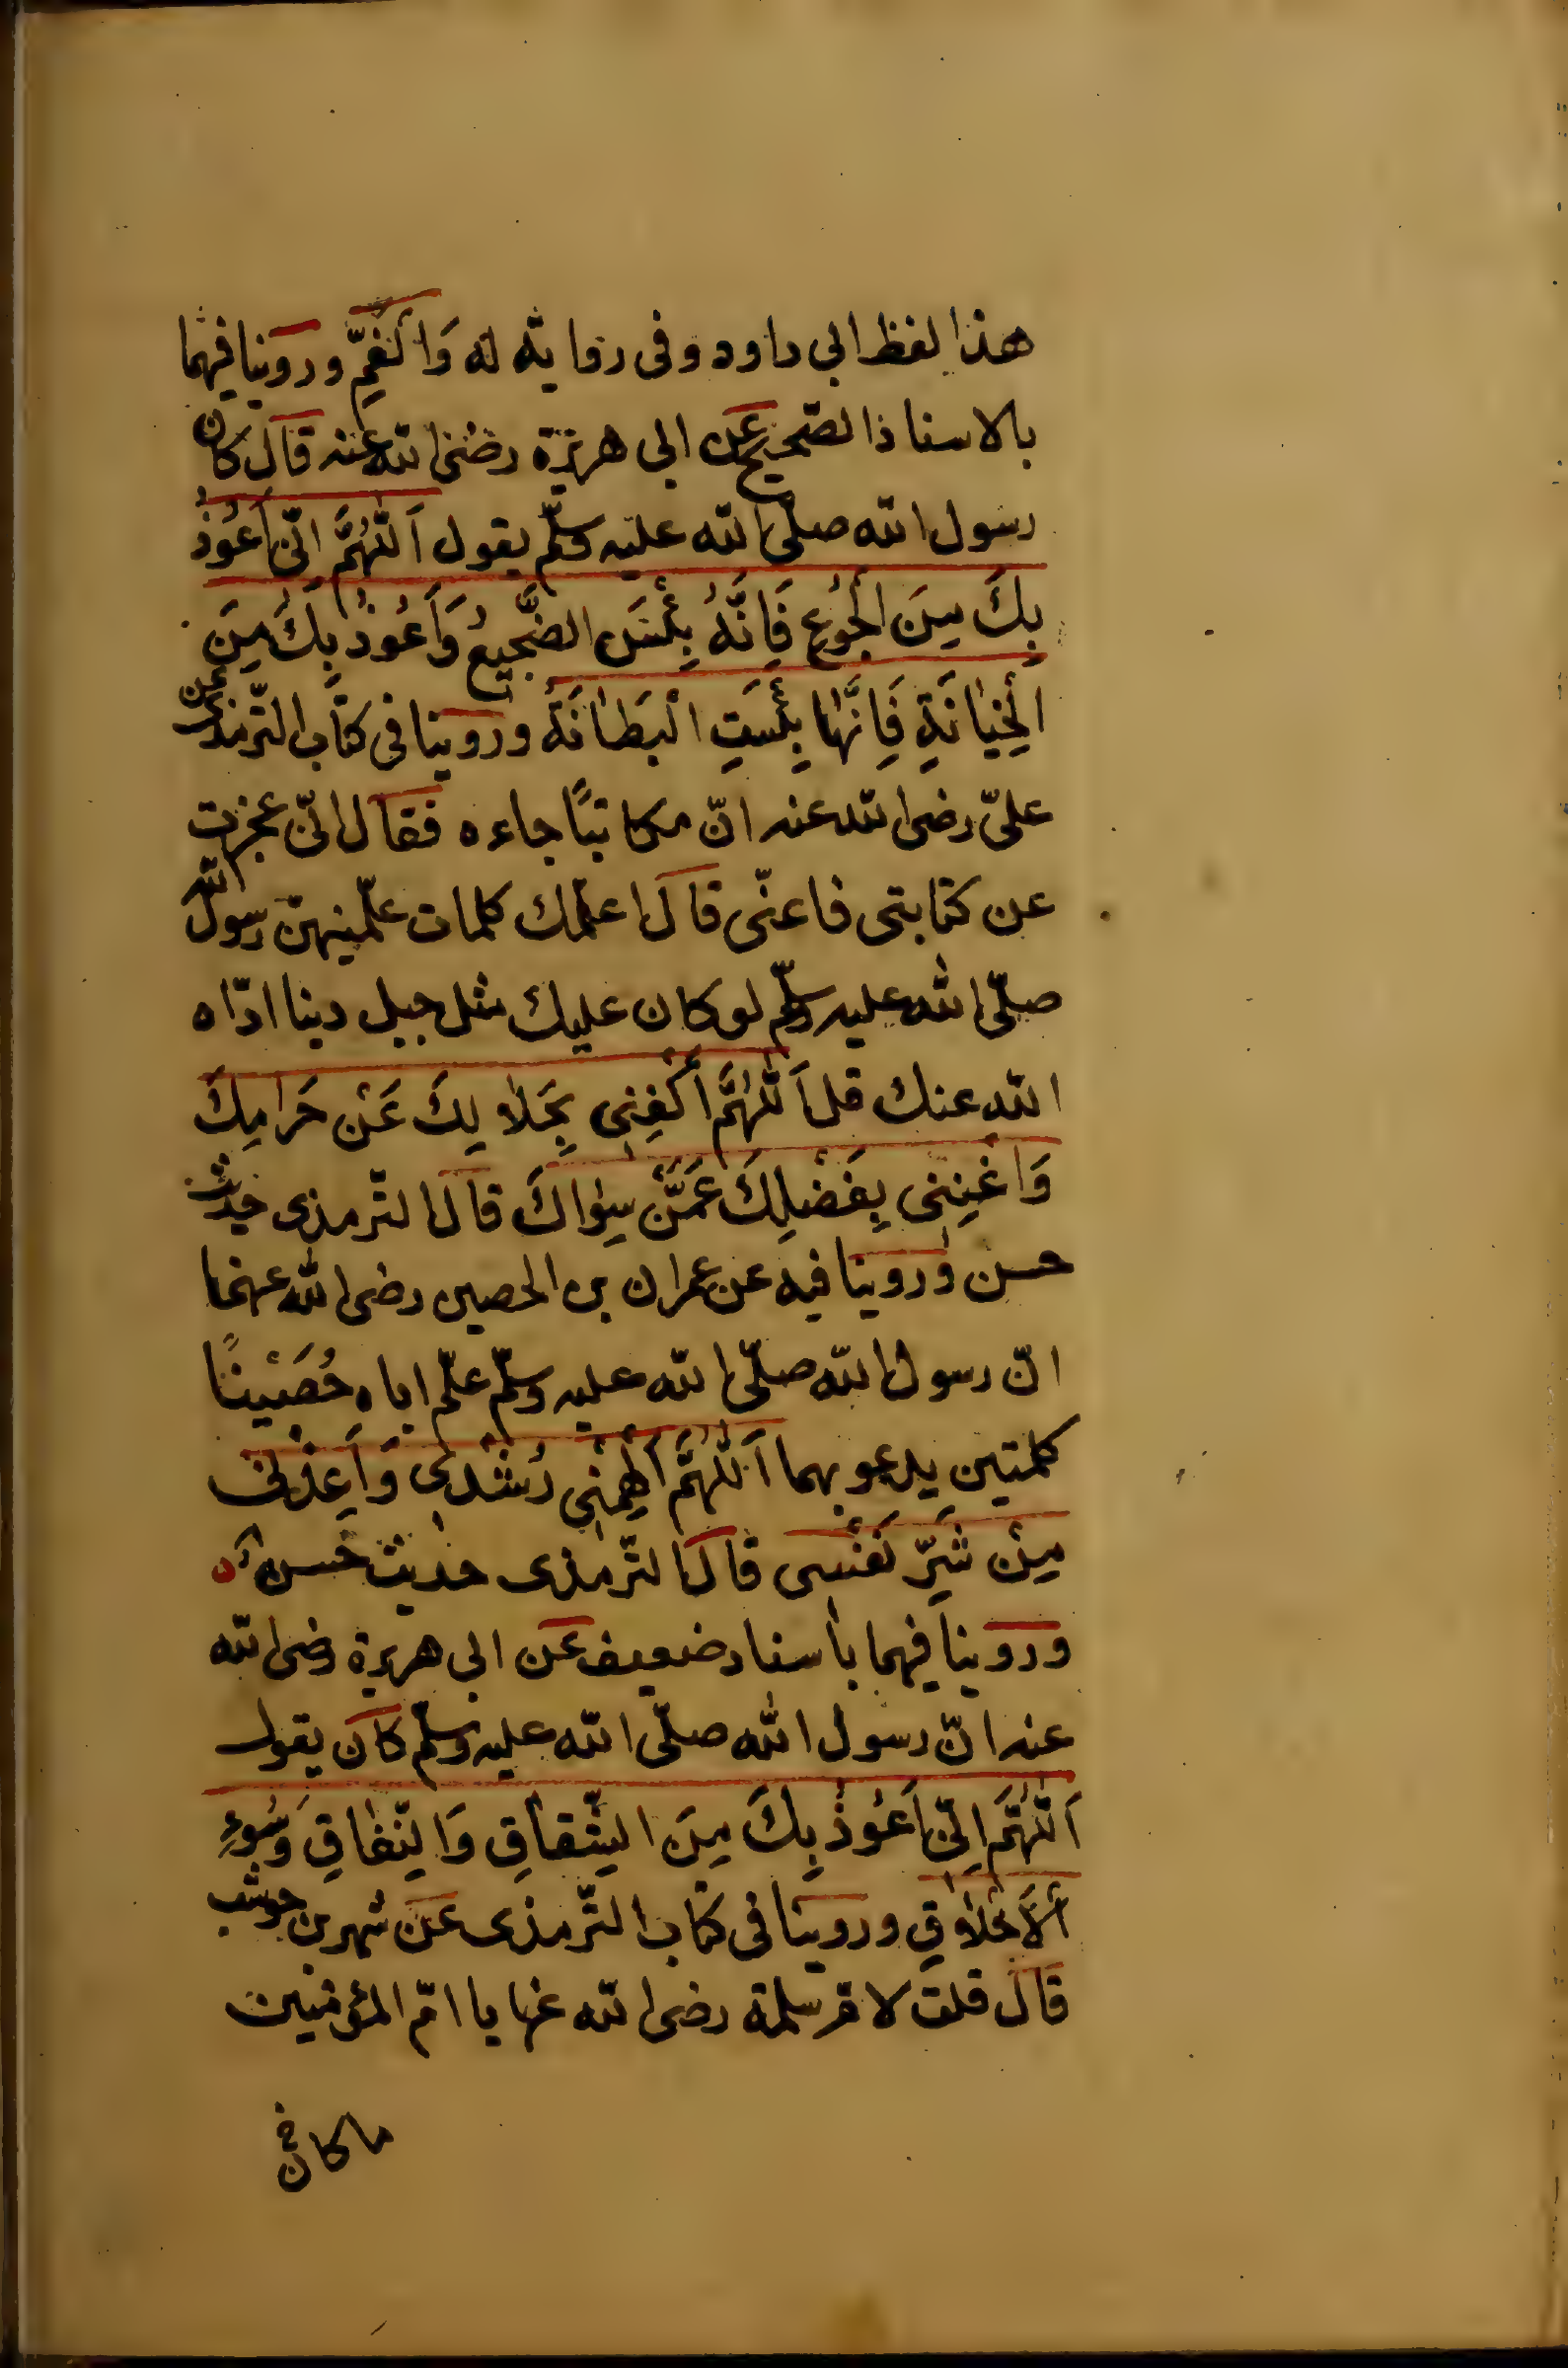 هذا لفظ ابي داود وفى رواية له وَالْغَمِّ وروينا فيهما
بالاسناد الصّحيح عن ابى هريرة رضى الله عنه قال كان
رسول الله صلّى الله عليه وسلّم يقول اَللّٰهُمَّ اِنّى اَعُوْذُ
بِكَ مِنَ الْجُوْعِ فَاِنَّهُ بِئْسَ الضَّجِيعُ وَاَعُوْذُ بِكَ مِنَ
الْخِيَانَةِ فَاِنَّهَا بِئْسَتِ الْبِطَانَةُ وروينا فى كتاب التّرمذى عن
علىّ رضى الله عنه انّ مكاتبًا جاءه فقال انّى عجزت
عن كتابتى فاعنّى قال اعلّمك كلمات علّمنيهنّ رسول الله
صلّى الله عليه وسلّم لو كان عليك مثل جبل دينا ادّاه
الله عنك قل اَللّٰهُمَّ اكْفِنِى بِحَلَالِكَ عَنْ حَرَامِكَ
وَاَغْنِنِى بِفَضْلِكَ عَمَّنْ سِوَاكَ قال التّرمذى حديث
حسن وروينا فيه عن عمران بن الحصين رضى الله عنهما
انّ رسول الله صلّى الله عليه وسلّم علّم اباه حُصَيْنًا
كلمتين يدعو بهما اَللّٰهُمَّ اَلْهِمْنِى رُشْدِى وَاَعِذْنِى
مِنْ شَرِّ نَفْسِى قال التّرمذى حديث حسن
وروينا فيهما باسناد ضعيف عن ابى هريرة رضى الله
عنه انّ رسول الله صلّى الله عليه وسلّم كان يقول
اَللّٰهُمَّ اِنّى اَعُوْذُ بِكَ مِنَ الشِّقَاقِ وَالنِّفَاقِ وَسُوْءِ
الْاَخْلَاقِ وروينا فى كتاب التّرمذى عن شهر بن حوشب
قال قلت لامّ سلمة رضى الله عنها يا امّ المؤمنين
ما كان